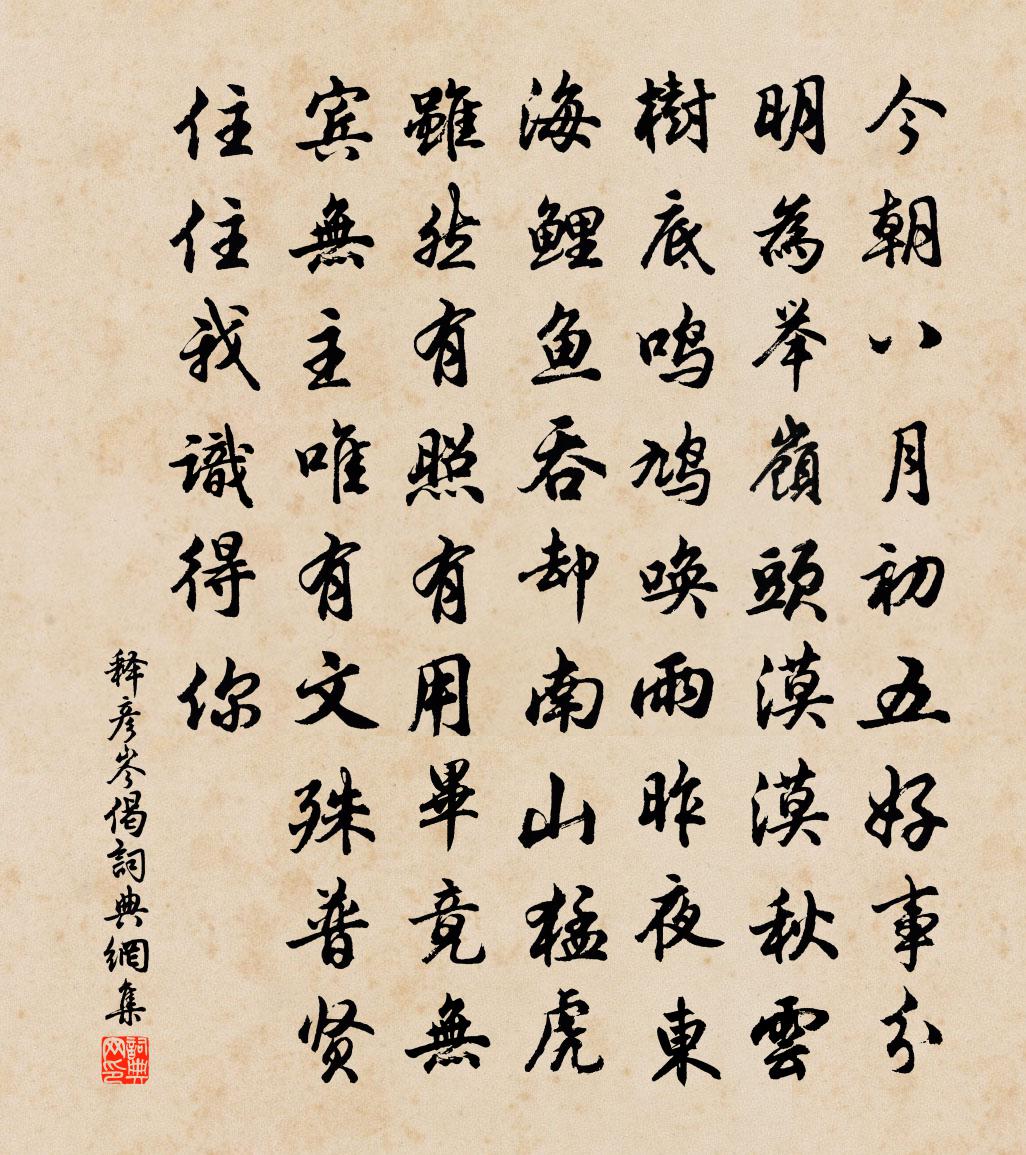 今朝八月初五好事分
明為举嶺頭漠漠秋雲
樹底鸣鸠唤雨昨夜東
海鲤鱼吞却南山猛虎
雖然有照有用畢竟無
宾無主唯有文殊普贤
住住我識得你
释彦岑偈詞典網集
詞典网印